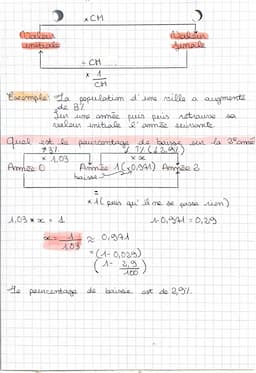 × CM
Valeur initiale
Valeur finale
÷ CM
× 1/CM
Exemple: La population d'une ville a augmenté
de 3%
sur une année puis puis retrouve sa
valeur initiale l'année suivante.
Quel est le pourcentage de baisse sur la 2e année
+3%
? % (↓2,9%)
× 1,03
× x
Année 0 Année 1 (×0,971) Année 2
baisse
=
×1 (puis qu'il ne se passe rien)
1,03 × x = 1
1-0,971 = 0,29
x = 1/1,03 ≈ 0,971
= (1-0,029)
(1- 2,9/100)
Le pourcentage de baisse est de 2,9%.